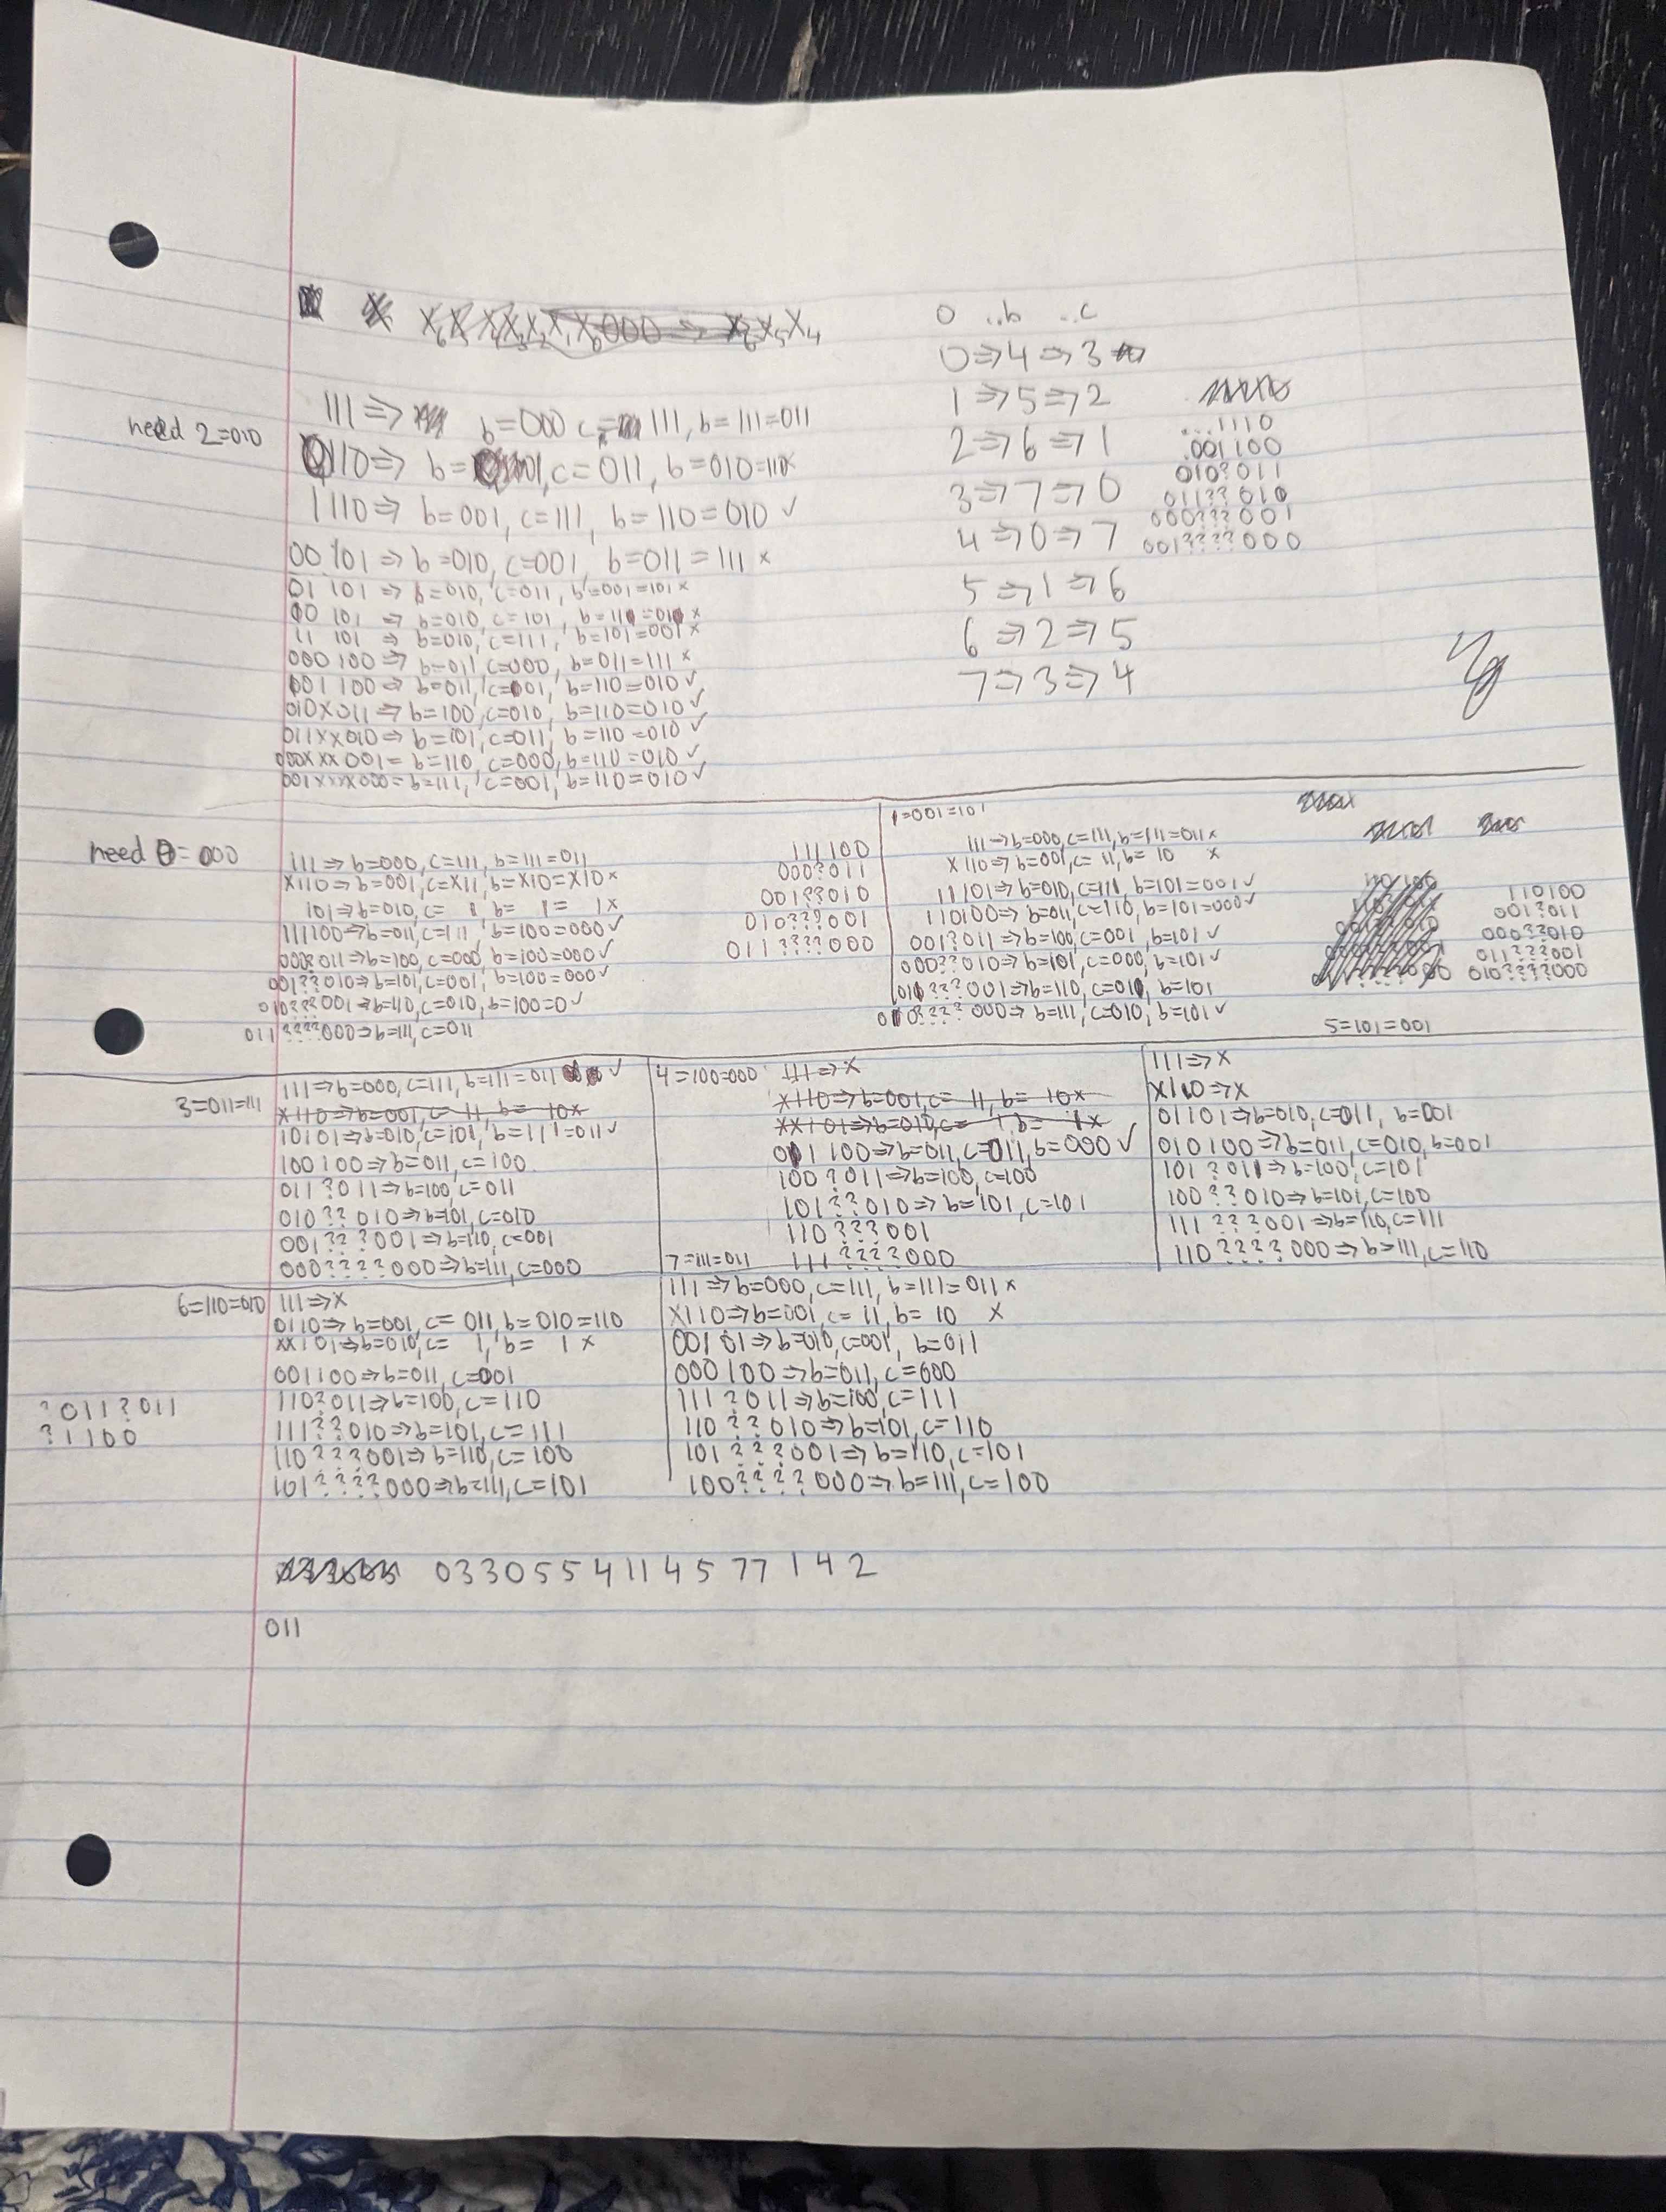 X₅X₄
0 ..b ..c
0⇒4⇒3
1⇒5⇒2
2⇒6⇒1
3⇒7⇒0
4⇒0⇒7
5⇒1⇒6
6⇒2⇒5
7⇒3⇒4
...1110
.001100
010?011
011??010
000???001
001????000
need 2=010
111⇒ b=000 c=111, b=111=011
0110⇒ b=001, c=011, b=010=110x
1110⇒ b=001, c=111, b=110=010 ✓
00101⇒b=010, c=001, b=011=111 x
01 101⇒b=010, c=011, b=001=101 x
10 101 ⇒ b=010, c=101, b=111=011 x
11 101 ⇒ b=010, c=111, b=101=001 x
000 100⇒b=011, c=000, b=011=111 x
001 100⇒b=011, c=001, b=110=010 ✓
010X011⇒b=100, c=010, b=110=010 ✓
011XX010⇒b=101, c=011, b=110=010 ✓
000XXX001=b=110, c=000, b=110=010 ✓
001XXXX000=b=111, c=001, b=110=010 ✓
need 0=000
111⇒b=000, c=111, b=111=011
X110⇒b=001, c=X11, b=X10=X10 x
101⇒b=010, c= 1, b= 1= 1x
111100⇒b=011, c=111, b=001=000 ✓
000?011⇒b=100, c=000, b=001=000 ✓
001??010⇒b=101, c=001, b=100=000 ✓
010???001⇒b=110, c=010, b=100=0 ✓
011????000⇒b=111, c=011
111100
000?011
001??010
010???001
011????000
1=001=101
111⇒b=000, c=111, b=111=011 x
X110⇒b=001, c= 11, b= 10 x
11101⇒b=010, c=111, b=101=001 ✓
110100⇒b=011, c=110, b=101=000 ✓
001?011⇒b=100, c=001, b=101 ✓
000??010⇒b=101, c=000, b=101 ✓
011???001⇒b=110, c=011, b=101
010????000⇒b=111, c=010, b=101 ✓
110100
001?011
000??010
011???001
010????000
3=011=111
111⇒b=000, c=111, b=111=011 ✓
X110⇒b=001, c= 11, b= 10x
10101⇒b=010, c=101, b=111=011 ✓
100100⇒b=011, c=100
011?011⇒b=100, c=011
010??010⇒b=101, c=010
001???001⇒b=110, c=001
000????000⇒b=111, c=000
4=100=000
111⇒x
X110⇒b=001, c= 11, b= 10x
XX101⇒b=010, c= 1, b= 1x
011100⇒b=011, c=011, b=000 ✓
100?011⇒b=100, c=100
101??010⇒b=101, c=101
110???001
111????000
5=101=001
111⇒x
X110⇒x
01101⇒b=010, c=011, b=001
010100⇒b=011, c=010, b=001
101?011⇒b=100, c=101
100??010⇒b=101, c=100
111???001⇒b=110, c=111
110????000⇒b=111, c=110
6=110=010
111⇒x
0110⇒b=001, c=011, b=010=110
XX101⇒b=010, c= 1, b= 1 x
001100⇒b=011, c=001
110?011⇒b=100, c=110
111??010⇒b=101, c=111
110???001⇒b=110, c=100
101????000⇒b=111, c=101
?011?011
?1100
7=111=011
111⇒b=000, c=111, b=111=011 x
X110⇒b=001, c= 11, b= 10 x
00101⇒b=010, c=001, b=011
000100⇒b=011, c=000
111?011⇒b=100, c=111
110??010⇒b=101, c=110
101???001⇒b=110, c=101
100????000⇒b=111, c=100
0330554114577142
011